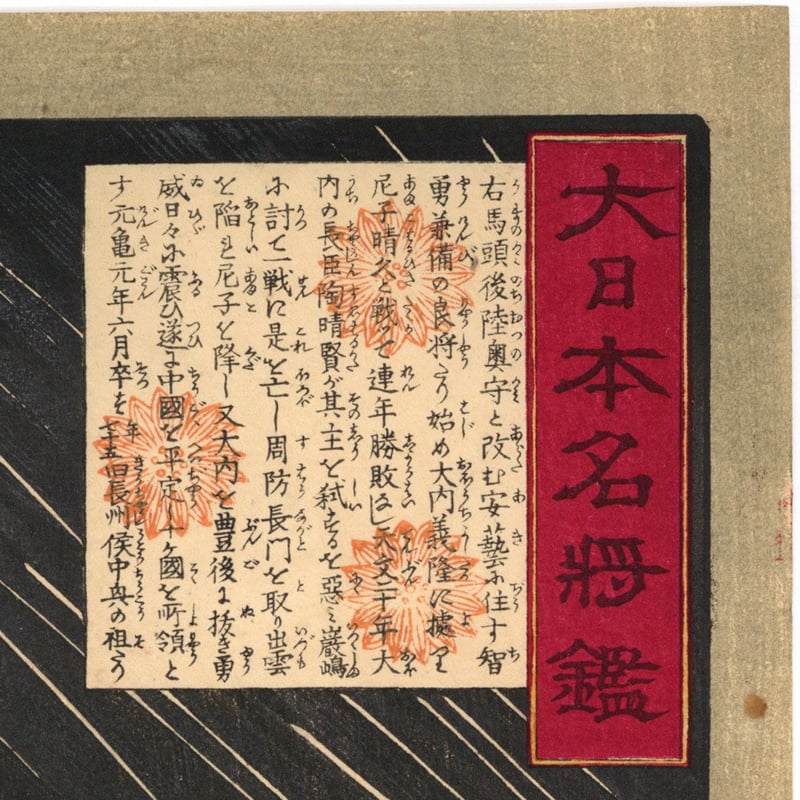 大日本名將鑑
右馬頭後陸奥守と改む安藝に住す智
勇兼備の良将たり始め大内義隆に據り
尼子晴久と戦つて連年勝敗なし天文二十年大
内の長臣陶晴賢が其主を弑するを惡ミ巌嶋
に討て一戦に是を亡し周防長門を取り出雲
を陥れ尼子を降し又大内を豊後に抜き勇
威日々に震ひ遂に中國を平定し十ケ國を所領と
す元亀元年六月卒を年七十五旧長州侯中興の祖たり